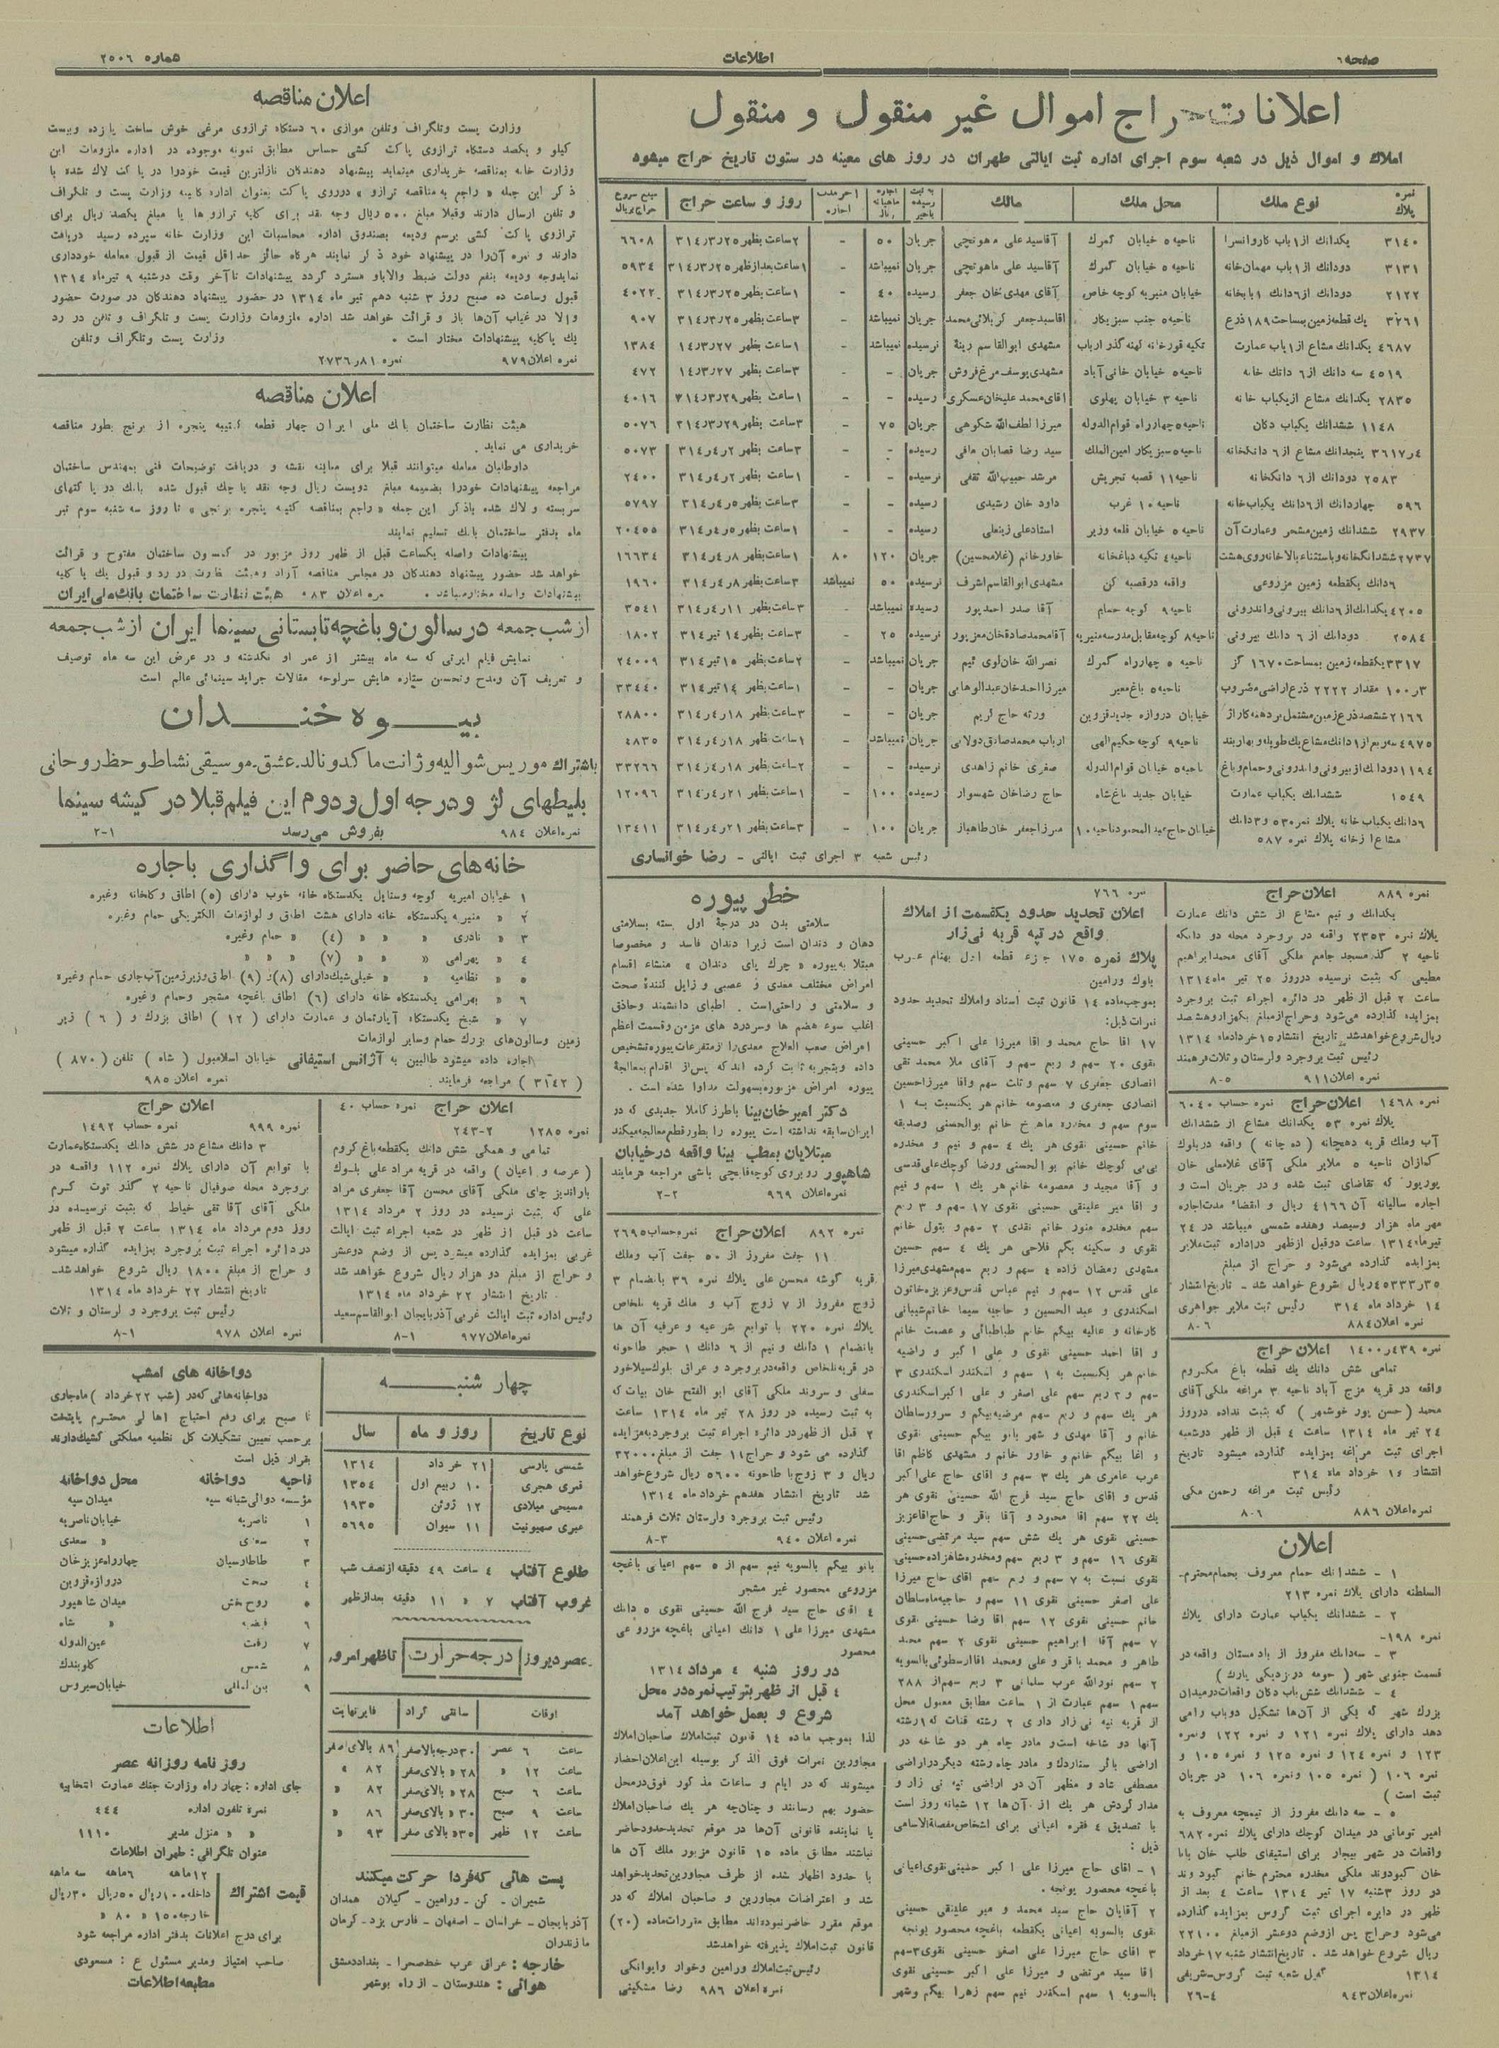 صفحه ۶
اطلاعات
شماره ۲۵۰۶
اعلانات حراج اموال غیر منقول و منقول
املاک و اموال ذیل در شعبه سوم اجرای اداره ثبت ایالتی طهران در روز های معینه در ستون تاریخ حراج میشود
نمره پلاک | نوع ملک | محل ملک | مالک | اجاره ماهیانه ریال | آخر مدت اجاره | روز و ساعت حراج | مبلغ شروع حراج بریال
۳۱۴۰ یکدانک از ۱ باب کاروانسرا ناحیه ۵ خیابان گمرک آقاسید علی ماهوتچی جریان ۵۰ - ۲ ساعت بظهر ۳۱۴/۳/۲۵ ۶۶۰۸
۳۱۳۱ دودانک از ۱ باب مهمان خانه ناحیه ۵ خیابان گمرک آقاسید علی ماهوتچی جریان نمیباشد - ۱ ساعت بعد از ظهر ۳۱۴/۳/۲۵ ۵۹۳۴
۲۱۲۲ خیابان منیریه کوچه خاص آقای مهدی خان جعفر رسیده ۴۰ - ۱ ساعت بظهر ۳۱۴/۳/۲۵ ۴۰۲۲
۳۲۶۱ یک قطعه زمین بمساحت ۱۸۹ ذرع ناحیه ۵ جنب سبزیکار آقاسید جعفر کربلائی محمد جریان نمیباشد - ۳ ساعت بظهر ۳۱۴/۳/۲۵ ۹۰۷
۴۶۸۷ یکدانک مشاع از ۱ باب عمارت مشهدی ابوالقاسم نرسیده نمیباشد - ۱ ساعت بظهر ۱۴/۳/۲۷ ۱۳۸۴
۴۵۱۹ سه دانک از ۶ دانک خانه ناحیه ۵ خیابان خانی آباد مشهدی یوسف مرغ فروش جریان - - ۳ ساعت بظهر ۱۴/۳/۲۷ ۴۷۲
۲۸۳۵ یکدانک مشاع از یکباب خانه ناحیه ۳ خیابان پهلوی آقای محمد علیخان عسکری رسیده - - ۱ ساعت بظهر ۳۱۴/۳/۲۹ ۴۰۱۶
۱۱۴۸ ششدانک یکباب دکان ناحیه ۵ چهارراه قوام الدوله میرزا لطف الله شکوهی جریان ۷۵ - ۳ ساعت بظهر ۳۱۴/۳/۲۹ ۵۰۷۶
۳۶۱۷/۴ پنجدانک مشاع از ۶ دانکخانه ناحیه ۵ سبزیکار امین الملک سید رضا قصابان مافی رسیده - - ۳ ساعت بظهر ۳۱۴/۴/۲ ۵۰۷۳
۲۵۸۳ دودانک از ۶ دانکخانه ناحیه ۱۱ قصبه تجریش مرشد حبیب الله ثقفی نرسیده - - ۱ ساعت بظهر ۳۱۴/۴/۲ ۲۴۰۰
۵۹۶ چهاردانک از ۶ دانک یکباب خانه ناحیه ۱۰ غرب داود خان رشیدی رسیده - - ۳ ساعت بظهر ۳۱۴/۴/۵ ۵۷۹۷
۲۹۳۷ ششدانک زمین مشجر و عمارت آن ناحیه ۵ خیابان قلعه وزیر استاد علی زینعلی رسیده - - ۱ ساعت بظهر ۳۱۴/۴/۵ ۲۰۴۵۵
۲۷۳۷ ششدانکخانه و باستثناء بالاخانه روی هشت ناحیه ۴ تکیه دباغخانه خاور خانم (غلامحسین) جریان ۱۲۰ ۸۰ ۱ ساعت بظهر ۳۱۴/۴/۸ ۱۶۶۳۴
۶ دانک یکقطعه زمین مزروعی واقعه در قصبه کن مشهدی ابوالقاسم اشرف نرسیده ۵۰ نمیباشد ۳ ساعت بظهر ۳۱۴/۴/۸ ۱۹۶۰
۴۲۰۵ یکدانک از ۶ دانک بیرونی و اندرونی ناحیه ۹ کوچه حمام آقا صدر احمد پور رسیده نمیباشد - ۳ ساعت بظهر ۳۱۴/۴/۱۱ ۳۵۴۱
۲۵۸۴ دودانک از ۶ دانک بیرونی ناحیه ۸ کوچه مقابل مدرسه منیریه آقا محمد صادقخان معزپور نرسیده ۲۵ - ۳ ساعت بظهر ۱۴ تیر ۳۱۴ ۱۸۰۲
۳۳۱۷ یکقطعه زمین بمساحت ۱۶۷۰ گز ناحیه ۵ چهارراه گمرک نصرالله خان جریان نمیباشد - ۲ ساعت بظهر ۱۵ تیر ۳۱۴ ۲۴۰۰۹
۱۰۰/۳ مقدار ۲۲۲۲ ذرع اراضی مضروب ناحیه ۵ باغ معیر میرزا احمد خان عبدالوهابی جریان - - ۱ ساعت بظهر ۱۴ تیر ۳۱۴ ۳۳۴۴۰
۲۱۶۶ خیابان دروازه جدید قزوین ورثه حاج کریم جریان - - ۳ ساعت بظهر ۳۱۴/۴/۱۸ ۲۸۸۰۰
۴۹۷۵ ناحیه ۹ کوچه حکیم الهی ارباب محمد صادق دولابی جریان نمیباشد - ۱ ساعت بظهر ۳۱۴/۴/۱۸ ۴۸۳۵
۱۱۹۴ دودانک از بیرونی و اندرونی و حمام و باغ ناحیه ۵ خیابان قوام الدوله صغری خانم زاهدی نرسیده - - ۲ ساعت بظهر ۳۱۴/۴/۱۸ ۳۳۲۶۶
۱۵۴۹ ششدانک یکباب عمارت خیابان جدید باغ شاه حاج رضاخان شهسوار رسیده ۱۰۰ - ۱ ساعت بظهر ۳۱۴/۴/۲۱ ۱۲۰۹۶
۶ دانک یکباب خانه پلاک نمره ۵۳۰ و ۳ دانک مشاع از خانه پلاک نمره ۵۸۷ خیابان حاج عبدالمحمود ناحیه ۱۰ میرزا جعفر خان طاهباز جریان ۱۰۰ - ۳ ساعت بظهر ۳۱۴/۴/۲۱ ۱۳۴۱۱
رئیس شعبه ۳ اجرای ثبت ایالتی - رضا خوانساری
نمره ۸۸۹ اعلان حراج
یکدانک و نیم مشاع از شش دانک عمارت
پلاک نمره ۲۳۵۳ واقعه در بروجرد محله دو دانکه
ناحیه ۲ گذر مسجد جامع ملکی آقای محمد ابراهیم
مطیعی که بثبت نرسیده در روز ۲۵ تیر ماه ۱۳۱۴
ساعت ۲ قبل از ظهر در دائره اجراء ثبت بروجرد
بمزایده گذارده می‌شود و حراج از مبلغ یکهزار و هشتصد
ریال شروع خواهد شد تاریخ انتشار ۱۵ خرداد ماه ۱۳۱۴
رئیس ثبت بروجرد ولرستان و ثلاث فرهمند
نمره اعلان ۹۱۱ ۸-۵
نمره ۱۴۶۸ اعلان حراج نمره حساب ۶۰۴۰
پلاک نمره ۵۳ یکدانک مشاع از ششدانک
آب وملک قریه دهچانه (ده چانه) واقعه در بلوک
کمازان ناحیه ۵ ملایر ملکی آقای غلامعلی خان
پورپور که تقاضای ثبت شده و در جریان است و
اجاره سالیانه آن ۴۱۶۶ ریال و انقضاء مدت اجاره
مهر ماه هزار و سیصد و هفده شمسی میباشد در ۲۴
تیرماه ۱۳۱۴ ساعت دو قبل از ظهر در اداره ثبت ملایر
بمزایده گذارده می‌شود و حراج از مبلغ
۴۵۳۳۳/۳۵ ریال شروع خواهد شد - تاریخ انتشار
۱۴ خرداد ماه ۳۱۴ رئیس ثبت ملایر جواهری
نمره اعلان ۸۸۴ ۸-۶
نمره ۱۴۰۰/۴۳۹ اعلان حراج
تمامی شش دانک یک قطعه باغ مکروم
واقعه در قریه مزج آباد ناحیه ۳ مراغه ملکی آقای
محمد (حسن پور خوشهر) که بثبت نداده در روز
۲۴ تیر ماه ۱۳۱۴ ساعت ۴ قبل از ظهر در شعبه
اجرای ثبت مراغه بمزایده گذارده میشود تاریخ
انتشار ۱۶ خرداد ماه ۳۱۴
رئیس ثبت مراغه رحمن مکی
نمره اعلان ۸۸۶ ۸-۶
اعلان
۱ - ششدانک حمام معروف بحمام محترم-
السلطنه دارای پلاک نمره ۲۱۳
۲ - ششدانک یکباب عمارت دارای پلاک
نمره ۱۹۸-
۳ - سه دانک مفروز از باد مستان واقعه در
قسمت جنوبی شهر (حومه در نزدیکی پارک)
۴ - ششدانک شش باب دکان واقعات در میدان
بزرک شهر که یکی از آن‌ها تشکیل دوباب رامی
دهد دارای پلاک نمره ۱۲۱ و نمره ۱۲۲ ونمره
۱۲۳ و نمره ۱۲۴ و نمره ۱۲۵ و نمره ۱۰۵ و
نمره ۱۰۶ (نمره ۱۰۵ و نمره ۱۰۶ در جریان
ثبت است)
۵ - سه دانک مفروز از تیمچه معروف به
امیر تومانی در میدان کوچک دارای پلاک نمره ۶۸۲
واقعات در شهر بیجار برای استیفای طلب خان بابا
خان کبودوند ملکی مخدره محترم خانم کبود وند
در روز ۳ شنبه ۱۷ تیر ۱۳۱۴ ساعت ۴ بعد از
ظهر در دایره اجرای ثبت گروس بمزایده گذارده
می‌شود و حراج پس از وضع دوعشر از مبلغ ۲۲۱۰۰
ریال شروع خواهد شد . تاریخ انتشار شنبه ۱۷ خرداد
۱۳۱۴ کفیل شعبه ثبت گروس-شریفی
نمره اعلان ۹۴۳ ۲۶-۴
نمره ۷۶۶
اعلان تحدید حدود یکقسمت از املاک
واقع در تپه قریه نی‌زار
پلاک نمره ۱۷۵ جزء قطعه اول بهنام عرب
بلوک ورامین
بموجب ماده ۱۴ قانون ثبت اسناد واملاک تحدید حدود
نمرات ذیل:
۱۷ اقا حاج محمد و اقا میرزا علی اکبر حسینی
نقوی ۲۰ سهم و ربع سهم و آقای ملا محمد تقی
انصاری جعفری ۷ سهم و ثلث سهم واقا میرزا حسین
انصاری جعفری و معصومه خانم هر یک نسبت به ۱
سوم سهم و مخدره ماهرخ خانم بوالحسنی وصدیقه
خانم حسینی نقوی هر یک ۴ سهم و نیم و مخدره
بی‌بی کوچک خانم بوالحسنی ورضا کوچک علی قدسی
و آقا مجید و معصومه خانم هر یک ۱ سهم و نیم
و اقا میر علینقی حسینی نقوی ۱۷ سهم و ۳ ربع
سهم مخدره منور خانم نقدی ۲ سهم و بتول خانم
نقوی و سکینه بگم فلاحی هر یک ۴ سهم حسین
مشهدی رمضان زاده ۴ سهم و ربع سهم مشهدی میرزا
علی قدس ۱۲ سهم و نیم عباس قدس وعزیزه خاتون
اسکندری و عبدالحسین و حاجیه سیما خانم شیبانی
کارخانه و عالیه بیگم خانم طباطبائی و عصمت خانم
و اقا احمد حسینی نقوی و علی اکبر و راضیه
خانم هر یک نسبت به ۱ سهم و اسکندر اسکندری ۳
سهم و ۳ ربع سهم علی اصغر و علی اکبر اسکندری
هر یک سهم و ربع سهم مرضیه بیگم و سرور سلطان
خانم و آقا مهدی و شهر بانو بیگم حسینی نقوی
و اغا بیگم خانم و خاور خانم و مشهدی کاظم اقا
عرب عامری هر یک ۳ سهم و اقای حاج علی اکبر
قدس و اقای حاج سید فرج الله حسینی نقوی هر
یک ۲۲ سهم اقا محمود و اقا باقر و حاج اقا عزیز
حسینی نقوی هر یک شش سهم سید مرتضی حسینی
نقوی ۱۶ سهم و ۳ ربع سهم ومخدره شاهزاده حسینی
نقوی نسبت به ۷ سهم و ربع سهم اقای حاج میرزا
علی اصغر حسینی نقوی ۱۱ سهم و حاجیه ماه سلطان
خانم حسینی نقوی ۱۲ سهم اقا رضا حسینی نقوی
۷ سهم آقا ابراهیم حسینی نقوی ۲ سهم محمد
طاهر و محمد باقر و علی ومحمد اقا ارسطوئی بالسویه
۲ سهم نورالله عرب سلمانی ۳ ربع سهم از ۲۸۸
سهم ۱ سهم عبارت از ۱ ساعت مطابق معمول محل
از قریه تپه نی زار داری ۲ رشته قنات که ۱ رشته
آنها دو شاخه است و مادر چاه هر دو شاخه در
اراضی بائر سناردک و مادر چاه رشته دیگر در اراضی
مصطفی شاد و مظهر آن در اراضی تپه نی زار و
مدار گردش هر یک از آن‌ها ۱۲ شبانه روز است
با تصدیق ۴ فقره اعیانی برای اشخاص مفصلة الاسامی
ذیل :
۱ - اقای حاج میرزا علی اکبر حسینی نقوی اعیانی
باغچه محصور یونجه .
۲ آقایان حاج سید محمد و میر علینقی حسینی
نقوی بالسویه اعیانی یکقطعه باغچه محصور یونجه
۳ اقای حاج میرزا علی اصغر حسینی نقوی ۳ سهم
آقا سید مرتضی و میرزا علی اکبر حسینی نقوی
بالسویه ۱ سهم اسکندر نیم سهم زهرا بیگم وشهر
خطر پیوره
سلامتی بدن در درجهٔ اول بسته بسلامتی
دهان و دندان است زیرا دندان فاسد و مخصوصا
مبتلا به پیوره « چرک پای دندان » منشاء اقسام
امراض مختلف معدی و عصبی و زایل کنندهٔ صحت
و سلامتی و راحتی است . اطبای دانشمند وحاذق
اغلب سوء هضم ها وسردرد های مزمن وقسمت اعظم
امراض صعب العلاج معدی را از متفرعات پیوره تشخیص
داده وبتجربه ثابت کرده اند که پس از اقدام بمعالجهٔ
پیوره امراض مزبوره بسهولت مداوا شده است .
دکتر امیر خان بینا باطرز کاملا جدیدی که در
ایران سابقه نداشته است پیوره را بطور قطع معالجه میکند
مبتلایان بمطب بینا واقعه در خیابان
شاهپور روبروی کوچه قاپچی باشی مراجعه فرمایند
نمره اعلان ۹۶۹ ۲-۲
نمره ۸۹۲ اعلان حراج نمره حساب ۲۶۹۵
۱۱ جفت مفروز از ۵۰ جفت آب وملک
قریه گوشه محسن علی پلاک نمره ۳۶ بانضمام ۳
زوج مفروز از ۷ زوج آب و ملک قریه تلخاص
پلاک نمره ۲۲۰ با توابع شرعیه و عرفیه آن ها
بانضمام ۱ دانک و نیم از ۶ دانک ۱ حجر طاحونه
در قریه تلخاص واقعه در بروجرد و عراق بلوک سیلاخور
سفلی و سروند ملکی آقای ابوالفتح خان بیات که
به ثبت رسیده در روز ۲۸ تیر ماه ۱۳۱۴ ساعت
۲ قبل از ظهر در دائره اجراء ثبت بروجرد بمزایده
گذارده می شود و حراج ۱۱ جفت از مبلغ ۳۲۰۰۰
ریال و ۳ زوج با طاحونه ۵۶۰۰ ریال شروع خواهد
شد تاریخ انتشار هفدهم خرداد ماه ۱۳۱۴
رئیس ثبت بروجرد ولرستان ثلاث فرهمند
نمره اعلان ۹۴۰ ۸-۳
بانو بیگم بالسویه نیم سهم از ۵ سهم اعیانی باغچه
مزروعی محصور غیر مشجر
۴ اقای حاج سید فرج الله حسینی نقوی ۵ دانک
مشهدی میرزا علی ۱ دانک اعیانی باغچه مزروعی
محصور
در روز شنبه ۴ مرداد ۱۳۱۴
۴ قبل از ظهر بترتیب نمره در محل
شروع و بعمل خواهد آمد
لذا بموجب ماده ۱۴ قانون ثبت املاک صاحبان املاک
مجاورین نمرات فوق الذکر بوسیله این اعلان احضار
میشوند که در ایام و ساعات مذکور فوق در محل
حضور بهم رسانند و چنانچه هر یک صاحبان املاک
یا نماینده قانونی آن‌ها در موقع تحدید حدود حاضر
نباشند مطابق ماده ۱۵ قانون مزبور ملک آن ها
با حدود اظهار شده از طرف مجاورین تحدید خواهد
شد و اعتراضات مجاورین و صاحبان املاک که در
موقع مقرر حاضر نبوده‌اند مطابق مقررات ماده (۲۰)
قانون ثبت املاک پذیرفته خواهد شد
رئیس ثبت املاک ورامین وخوار وایوانکی
نمره اعلان ۹۸۶ رضا مشکینی
اعلان مناقصه
وزارت پست وتلگراف وتلفن موازی ۶۰ دستگاه ترازوی مرغی خوش ساخت پانزده وبیست
کیلو و یکصد دستگاه ترازوی پاکت کشی حساس مطابق نمونه موجوده در اداره ملزومات این
وزارت خانه بمناقصه خریداری مینماید پیشنهاد دهندگان نازلترین قیمت خودرا در پاکت لاک شده با
ذکر این جمله « راجع به مناقصه ترازو » در روی پاکت بعنوان اداره کابینه وزارت پست و تلگراف
و تلفن ارسال دارند وقبلا مبلغ ۵۰۰ ریال وجه نقد برای کلیه ترازو ها یا مبلغ یکصد ریال برای
ترازوی پاکت کشی برسم ودیعه بصندوق اداره محاسبات این وزارت خانه سپرده رسید دریافت
دارند و نمره آن‌را در پیشنهاد خود ذکر نمایند هرگاه حائز حداقل قیمت از قبول معامله خودداری
نماید وجه ودیعه بنفع دولت ضبط والا باو مسترد گردد پیشنهادات تا آخر وقت دوشنبه ۹ تیرماه ۱۳۱۴
قبول وساعت ده صبح روز ۳ شنبه دهم تیر ماه ۱۳۱۴ در حضور پیشنهاد دهندگان در صورت حضور
والا در غیاب آن‌ها باز و قرائت خواهد شد اداره ملزومات وزارت پست و تلگراف و تلفن در رد
یک یا کلیه پیشنهادات مختار است . وزارت پست وتلگراف وتلفن
نمره اعلان ۹۷۹ نمره ۲۷۳۶/۸۱
اعلان مناقصه
هیئت نظارت ساختمان بانک ملی ایران چهار قطعه کتیبه پنجره از برنج بطور مناقصه
خریداری می نماید.
داوطلبان معامله میتوانند قبلا برای معاینه نقشه و دریافت توضیحات فنی بمهندس ساختمان
مراجعه پیشنهادات خودرا بضمیمه مبلغ دویست ریال وجه نقد یا چک قبول شده بانک در پاکتهای
سربسته و لاک شده باذکر این جمله « راجع بمناقصه کتیبه پنجره برنجی » تا روز سه شنبه سوم تیر
ماه بدفتر ساختمان بانک تسلیم نمایند
پیشنهادات واصله یکساعت قبل از ظهر روز مزبور در کمسیون ساختمان مفتوح و قرائت
خواهد شد حضور پیشنهاد دهندگان در مجلس مناقصه آزاد وهیئت نظارت در رد و قبول یک یا کلیه
پیشنهادات واصله مختار میباشد . نمره اعلان ۹۸۳ هیئت نظارت ساختمان بانک ملی ایران
از شب جمعه در سالون و باغچه تابستانی سینما ایران از شب جمعه
نمایش فیلم ایرتی که سه ماه بیشتر از عمر او نگذشته و در عرض این سه ماه توصیف
و تعریف آن ومدح وتحسین ستاره هایش سرلوحه مقالات جراید سینمائی عالم است
بیوه خندان
باشتراک موریس شوالیه و ژانت ماکدونالد. عشق. موسیقی نشاط و حظ روحانی
بلیطهای لژ و درجه اول و دوم این فیلم قبلا در گیشه سینما
نمره اعلان ۹۸۴ بفروش می‌رسد ۲-۱
خانه‌های حاضر برای واگذاری باجاره
۱ خیابان امیریه کوچه وستایل یکدستگاه خانه خوب دارای (۵) اطاق وگلخانه وغیره
۲ « منیریه یکدستگاه خانه دارای هشت اطاق و لوازمات الکتریکی حمام وغیره
۳ « نادری « « « (۴) « حمام وغیره
۴ « پهرامی « « « (۷) « « «
۵ « نظامیه « خیلی شیک دارای (۸) تا (۹) اطاق وزیر زمین آب جاری حمام وغیره
۶ « بهرامی یکدستگاه خانه دارای (۶) اطاق باغچه مشجر وحمام وغیره
۷ « شیخ یکدستگاه آپارتمان و عمارت دارای (۱۲) اطاق بزرک و (۶) زیر
زمین وسالون‌های بزرک حمام وسایر لوازمات
اجاره داده میشود طالبین به آژانس استیفانی خیابان اسلامبول (شاه) تلفن (۸۷۰)
(۳۱۴۲) مراجعه فرمایند. نمره اعلان ۹۸۵
اعلان حراج نمره حساب ۴۰
نمره ۱۲۸۵ ۲۴۳-۲
تمامی و همگی شش دانک یکقطعه باغ کروم
(عرصه و اعیان) واقعه در قریه مراد علی بلوک
باراندیز چای ملکی آقای محسن آقا جعفری مراد
علی که بثبت نرسیده در روز ۲ مرداد ۱۳۱۴
ساعت دو قبل از ظهر در شعبه اجراء ثبت ایالت
غربی بمزایده گذارده میشود پس از وضع دوعشر
و حراج از مبلغ دو هزار ریال شروع خواهد شد
تاریخ انتشار ۲۲ خرداد ماه ۱۳۱۴
رئیس اداره ثبت ایالت غربی آذربایجان ابوالقاسم سعید
نمره اعلان ۹۷۷ ۸-۱
اعلان حراج
نمره ۹۹۹ نمره حساب ۱۴۹۲
۳ دانک مشاع از شش دانک یکدستگاه عمارت
با توابع آن دارای پلاک نمره ۱۱۲ واقعه در
بروجرد محله صوفیان ناحیه ۲ گذر توت کرم
ملکی آقای آقا تقی خیاط که بثبت نرسیده در
روز دوم مرداد ماه ۱۳۱۴ ساعت ۲ قبل از ظهر
در دائره اجراء ثبت بروجرد بمزایده گذارده میشود
و حراج از مبلغ ۱۸۰۰ ریال شروع خواهد شد.
تاریخ انتشار ۲۲ خرداد ماه ۱۳۱۴
رئیس ثبت بروجرد و لرستان و ثلاث
نمره اعلان ۹۷۸ ۸-۱
چهار شنبه
نوع تاریخ | روز و ماه | سال
شمسی پارسی ۲۱ خرداد ۱۳۱۴
قمری هجری ۱۰ ربیع اول ۱۳۵۴
مسیحی میلادی ۱۲ ژوئن ۱۹۳۵
عبری صهیونیت ۱۱ سیوان ۵۶۹۵
طلوع آفتاب ۴ ساعت ۴۹ دقیقه از نصف شب
غروب آفتاب ۷ « ۱۱ دقیقه بعد از ظهر
عصر دیروز درجه حرارت تا ظهر امروز
اوقات | سانتی گراد | فارنهایت
ساعت ۶ عصر ۳۰ درجه بالا صفر ۸۶ بالای صفر
ساعت ۱۲ « ۲۸ « بالای صفر ۸۲ «
ساعت ۶ صبح ۲۸ « بالای صفر ۸۲ «
ساعت ۹ صبح ۳۰ « بالای صفر ۸۶ «
ساعت ۱۲ ظهر ۳۵ « بالای صفر ۹۳ «
پست هائی که فردا حرکت میکنند
شمیران - کن - ورامین - گیلان همدان
آذربایجان - خراسان - اصفهان - فارس یزد - کرمان
مازندران
خارجه : عراق عرب خط صحرا - بغداد دمشق
هوائی : هندوستان - از راه بوشهر
دواخانه های امشب
دواخانه‌هائی که در (شب ۲۲ خرداد) ماه جاری
تا صبح برای رفع احتیاج اهالی محترم پایتخت
برحسب تعیین تشکیلات کل نظمیه مملکتی کشیک دارند
بقرار ذیل است
ناحیه دواخانه محل دواخانه
مؤسسه دوائی شبانه سپه میدان سپه
۱ ناصریه خیابان ناصریه
۲ سعدی « سعدی
۳ طاطاوسیان چهارراه عزیزخان
۴ صحت دروازه قزوین
۵ روح بخش میدان شاهپور
۶ « شاه
۷ رفعت عین الدوله
۸ شمس گلوبندک
۹ خیابان سیروس
اطلاعات
روز نامه روزانه عصر
جای اداره : چهار راه وزارت جنک عمارت انتخابیه
نمره تلفون اداره ۴۴۴
« « منزل مدیر ۱۱۱۰
عنوان تلگرافی : طهران اطلاعات
قیمت اشتراک ۱۲ماهه ۶ماهه سه ماهه
داخله ۱۰۰ریال ۵۰ریال ۳۰ریال
خارجه ۱۵۰ « ۸۰ «
برای درج اعلانات بدفتر اداره مراجعه شود
صاحب امتیاز ومدیر مسئول ع : مسعودی
مطبعه اطلاعات